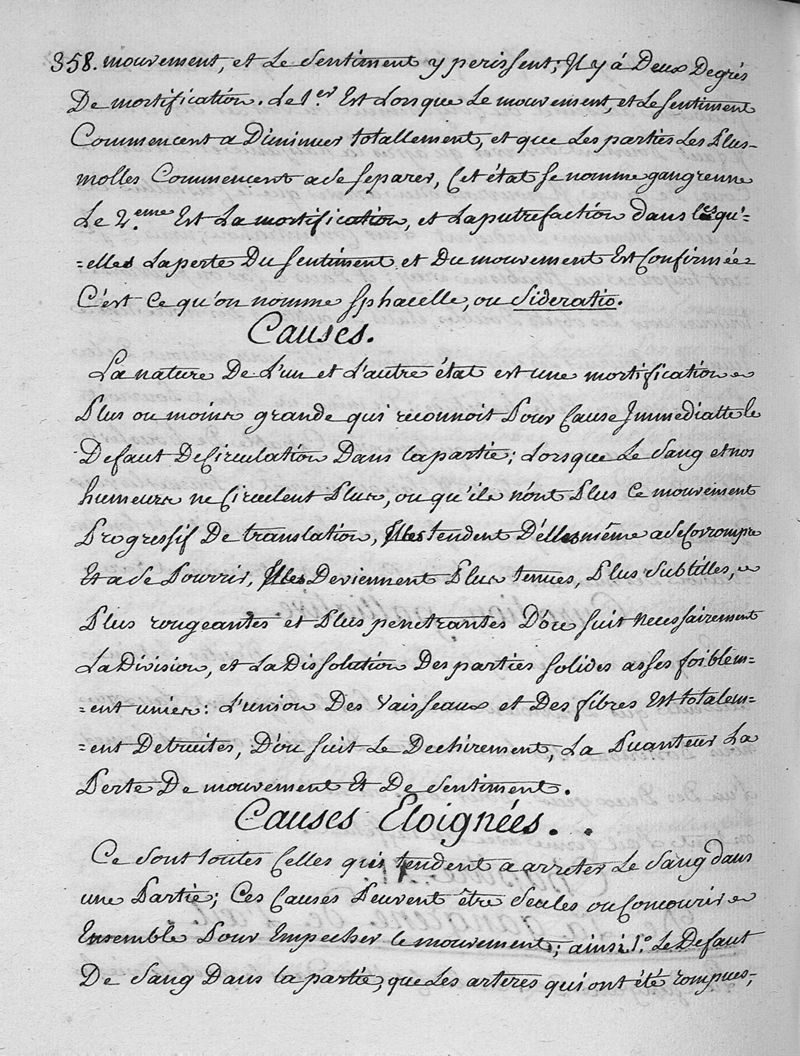 358. mouvement, et Le Sentiment y perissent; Il y á Deux Degrés
De mortification. Le 1.er Est Lorsque Le mouvement, et Le Sentiment
Commencent a Diminuer totallement, et que Les parties Les Plus-
molles Commencent a se separer, Cet état se nomme gangrenne
Le 2.eme Est La mortification, et La putrefaction dans lesqu'=
=elles La perte Du Sentiment et Du mouvement Est Confirmée
C'est Ce qu'on nomme Sphacelle, ou Sideratio.
Causes.
La nature De L'un et L'autre état est une mortification
Plus ou moins grande qui reconnoit Pour Cause Immediatte le
Defaut De Circulation Dans la partie; Lorsque Le Sang et nos
humeurs ne Circulent Plus, ou qu'ils n'ont Plus Ce mouvement
Progressif De translation, Illes tendent D'elles même a se Corrompre
Et a se Pourrir, Illes Deviennent Plus tenues, Plus Subtilles,
Plus rougeantes et Plus penetrantes D'ou suit necessairement
La Division, et La Dissolution Des parties solides asses foiblem=
=ent unies: L'union Des Vaisseaux et Des fibres Est totalem=
=ent Detruites, D'ou suit Le Dechirement, La Puanteur La
Perte De mouvement Et De Sentiment.
Causes Eloignées.
Ce sont toutes Celles qui tendent a arreter Le Sang dans
une Partie; Ces Causes Peuvent être Seules ou Concourir
Ensemble Pour Empecher le mouvement; ainsi 1.º Le Defaut
De Sang Dans la partie, que Les arteres qui ont été rompues,